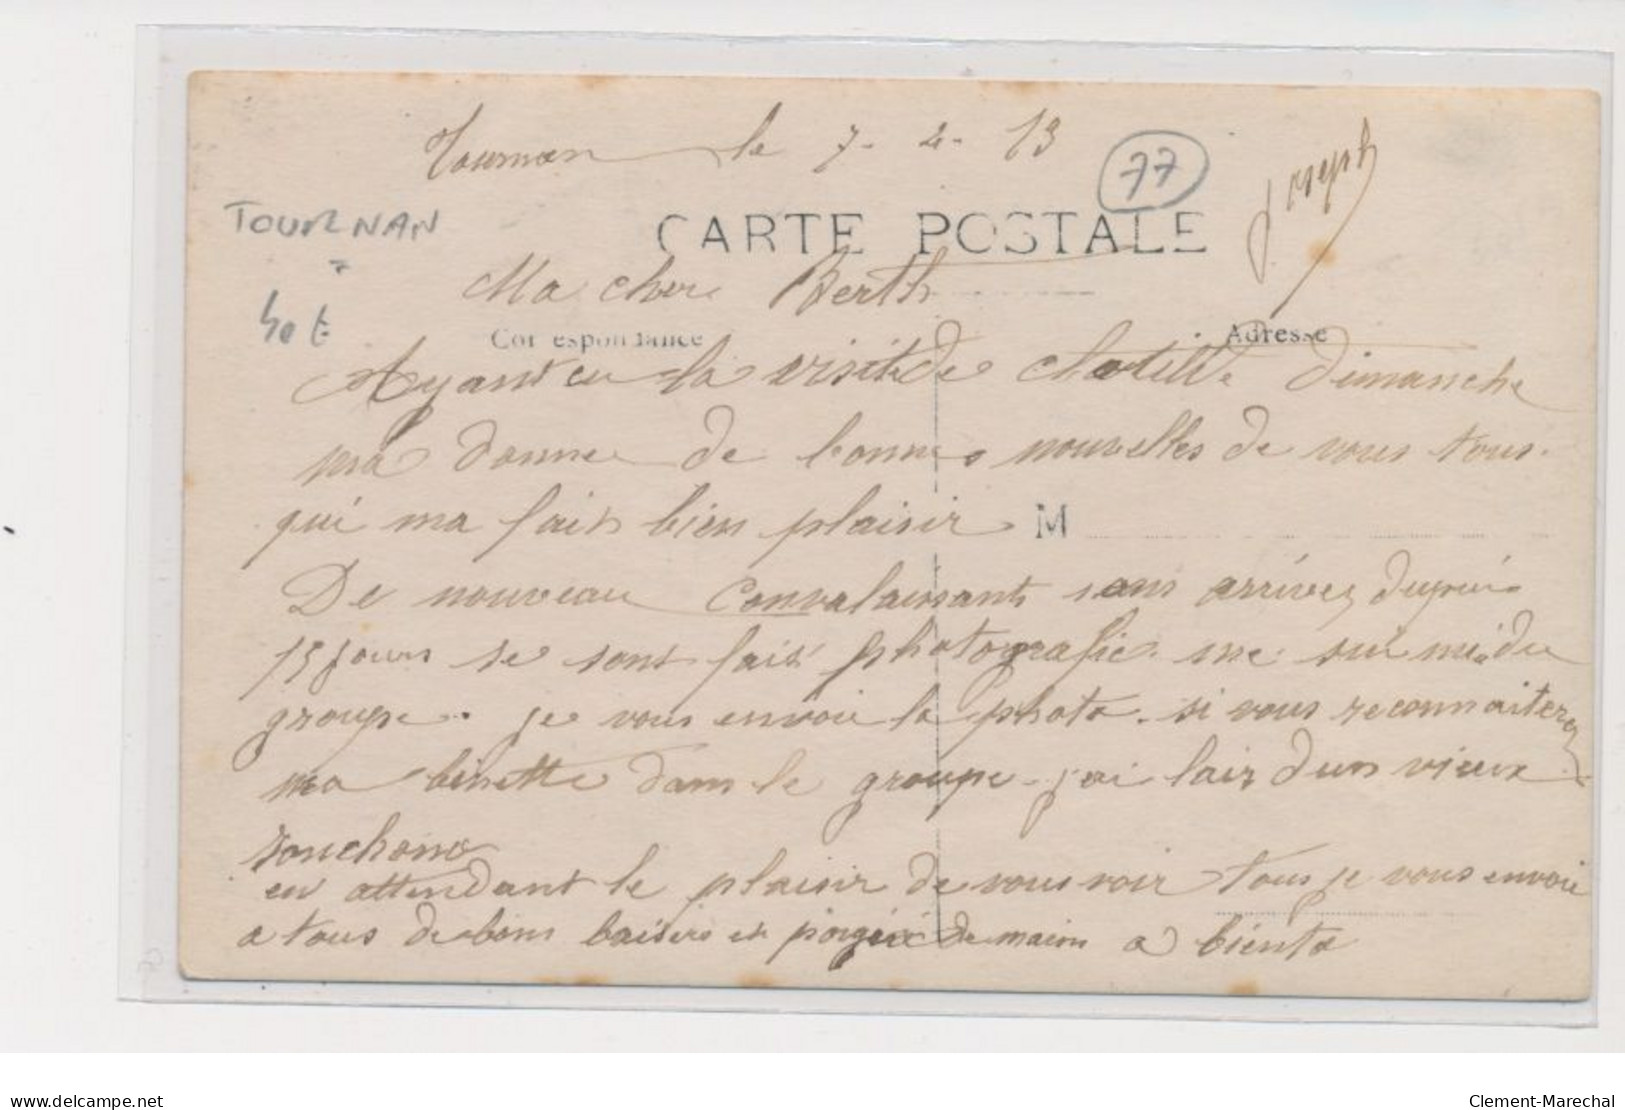 Tournan le 7-2-13
77
Joseph
TOURNAN
CARTE POSTALE
Ma cher Berth
40 €
Correspondance
Adresse
Ayant eu la visite de Clotilde Dimanche
ma donner de bonnes nouvelles de vous tous.
qui ma fait bien plaisir M
De nouveau Convalaissants sons arrivez depuis
15 jours se sont fait photografie. me sui mis du
groupe. je vous envoie la photo. si vous reconnaiterez
ma binette dans le groupe. j'ai lair d'un vieux
en attendant le plaisir de vous voir tous je vous envoie
a tous de bons baisers et poigné de main a biento
delcampe.net
Clement-Marechal